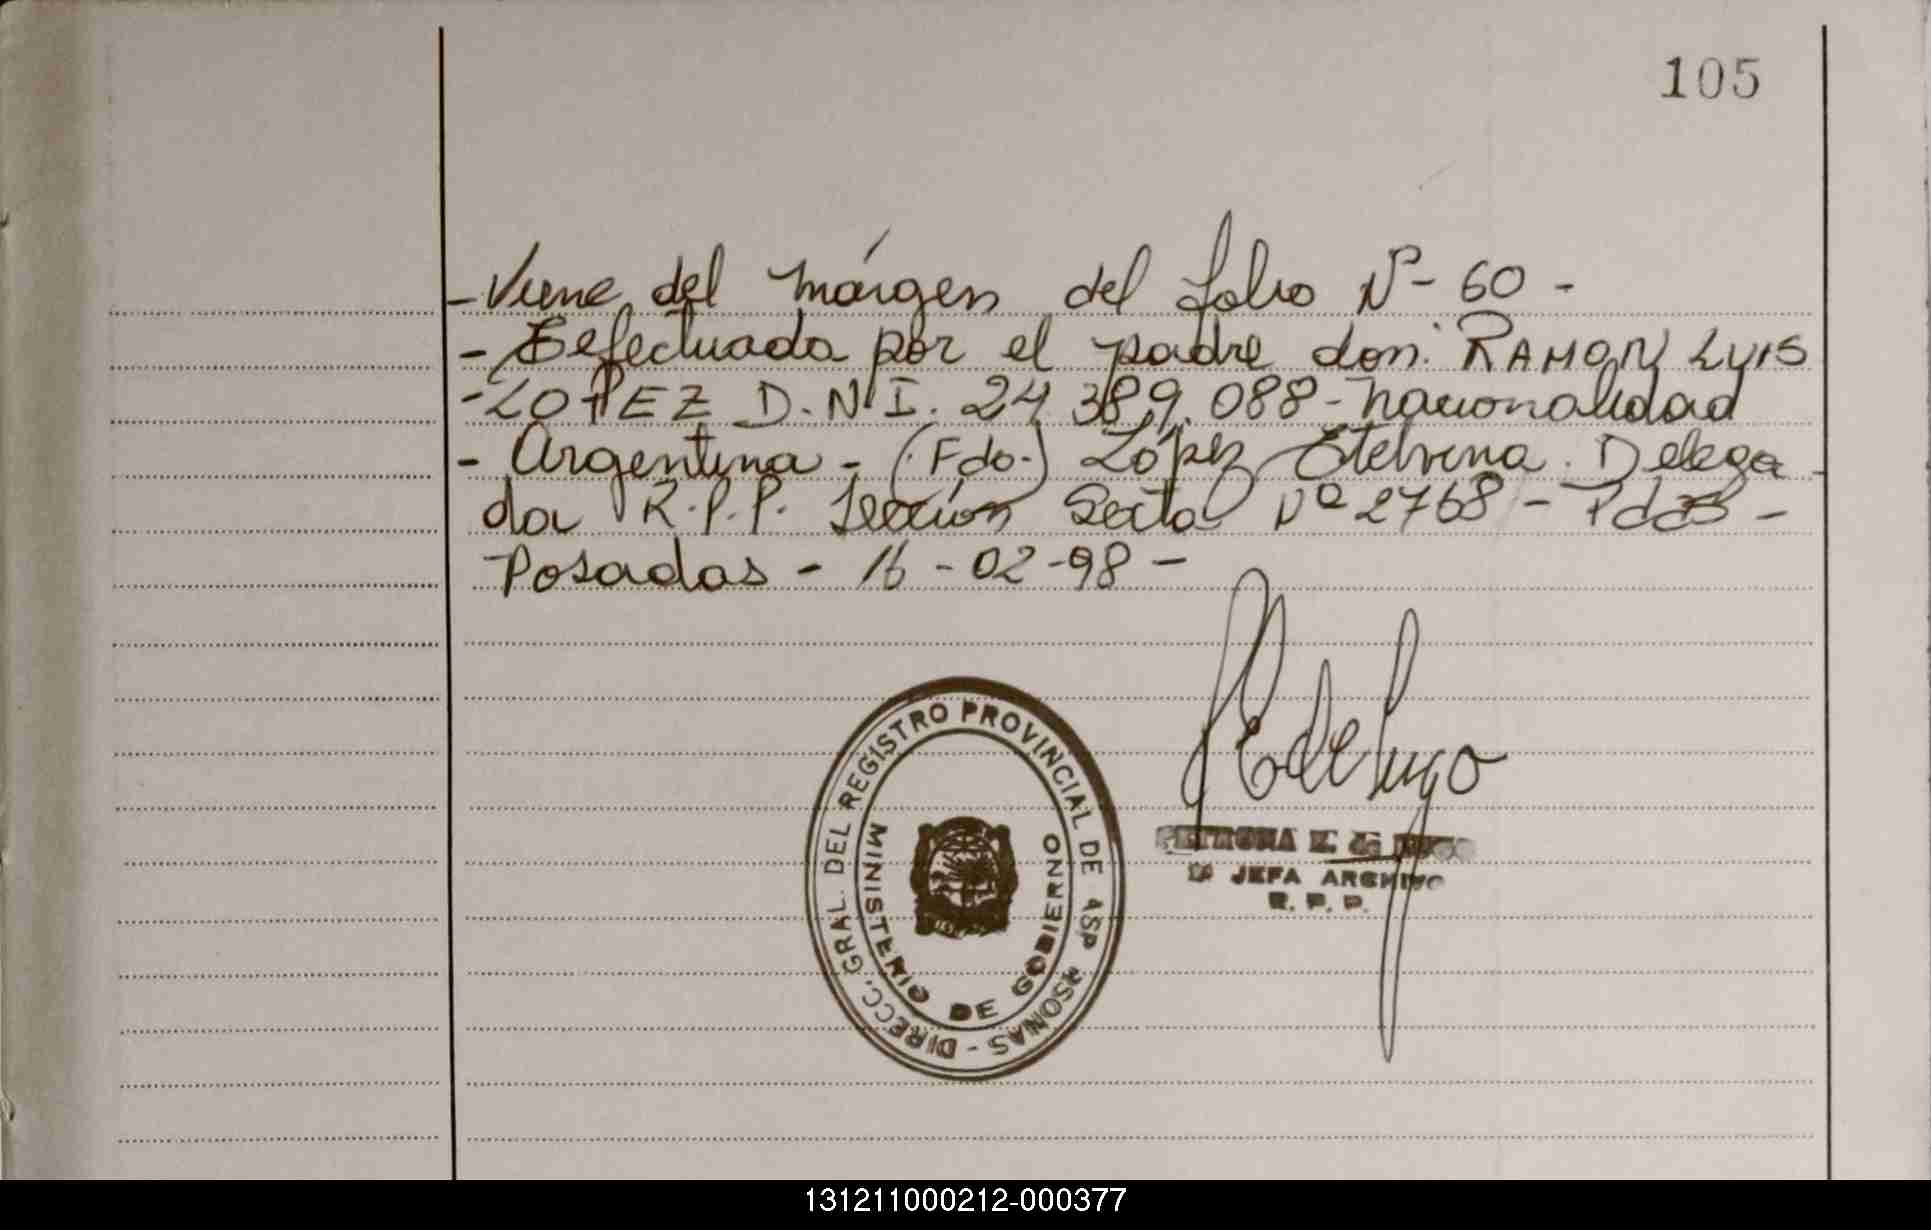 105
- Viene del márgen del folio Nº - 60 -
- Eefectuada por el padre don: RAMON LUIS
- LOPEZ D.N.I. 24.389.088 - nacionalidad
- Argentina - (Fdo.) López Etelvina. Delega
da R.P.P. Sección Sexta Nº 2768 - Pdas -
Posadas - 16 - 02 - 98 -
DIRECC. GRAL. DEL REGISTRO PROVINCIAL DE LAS PERSONAS -
MINISTERIO DE GOBIERNO
PETRONA E. de LUGO
JEFA ARCHIVO
R. P. P.
131211000212-000377